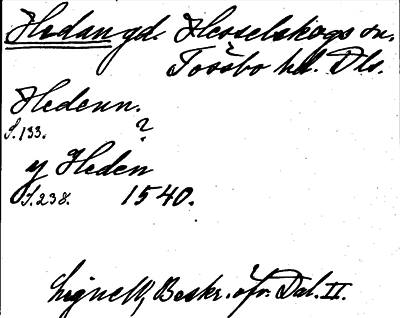 Hedan gd. Hesselskogs sn.
Tössbo hd. Dls.
Hedenn.
S. 133. ?
y Heden
S. 238. 1540.
Lignell, Beskr. öfv. Dal. II.